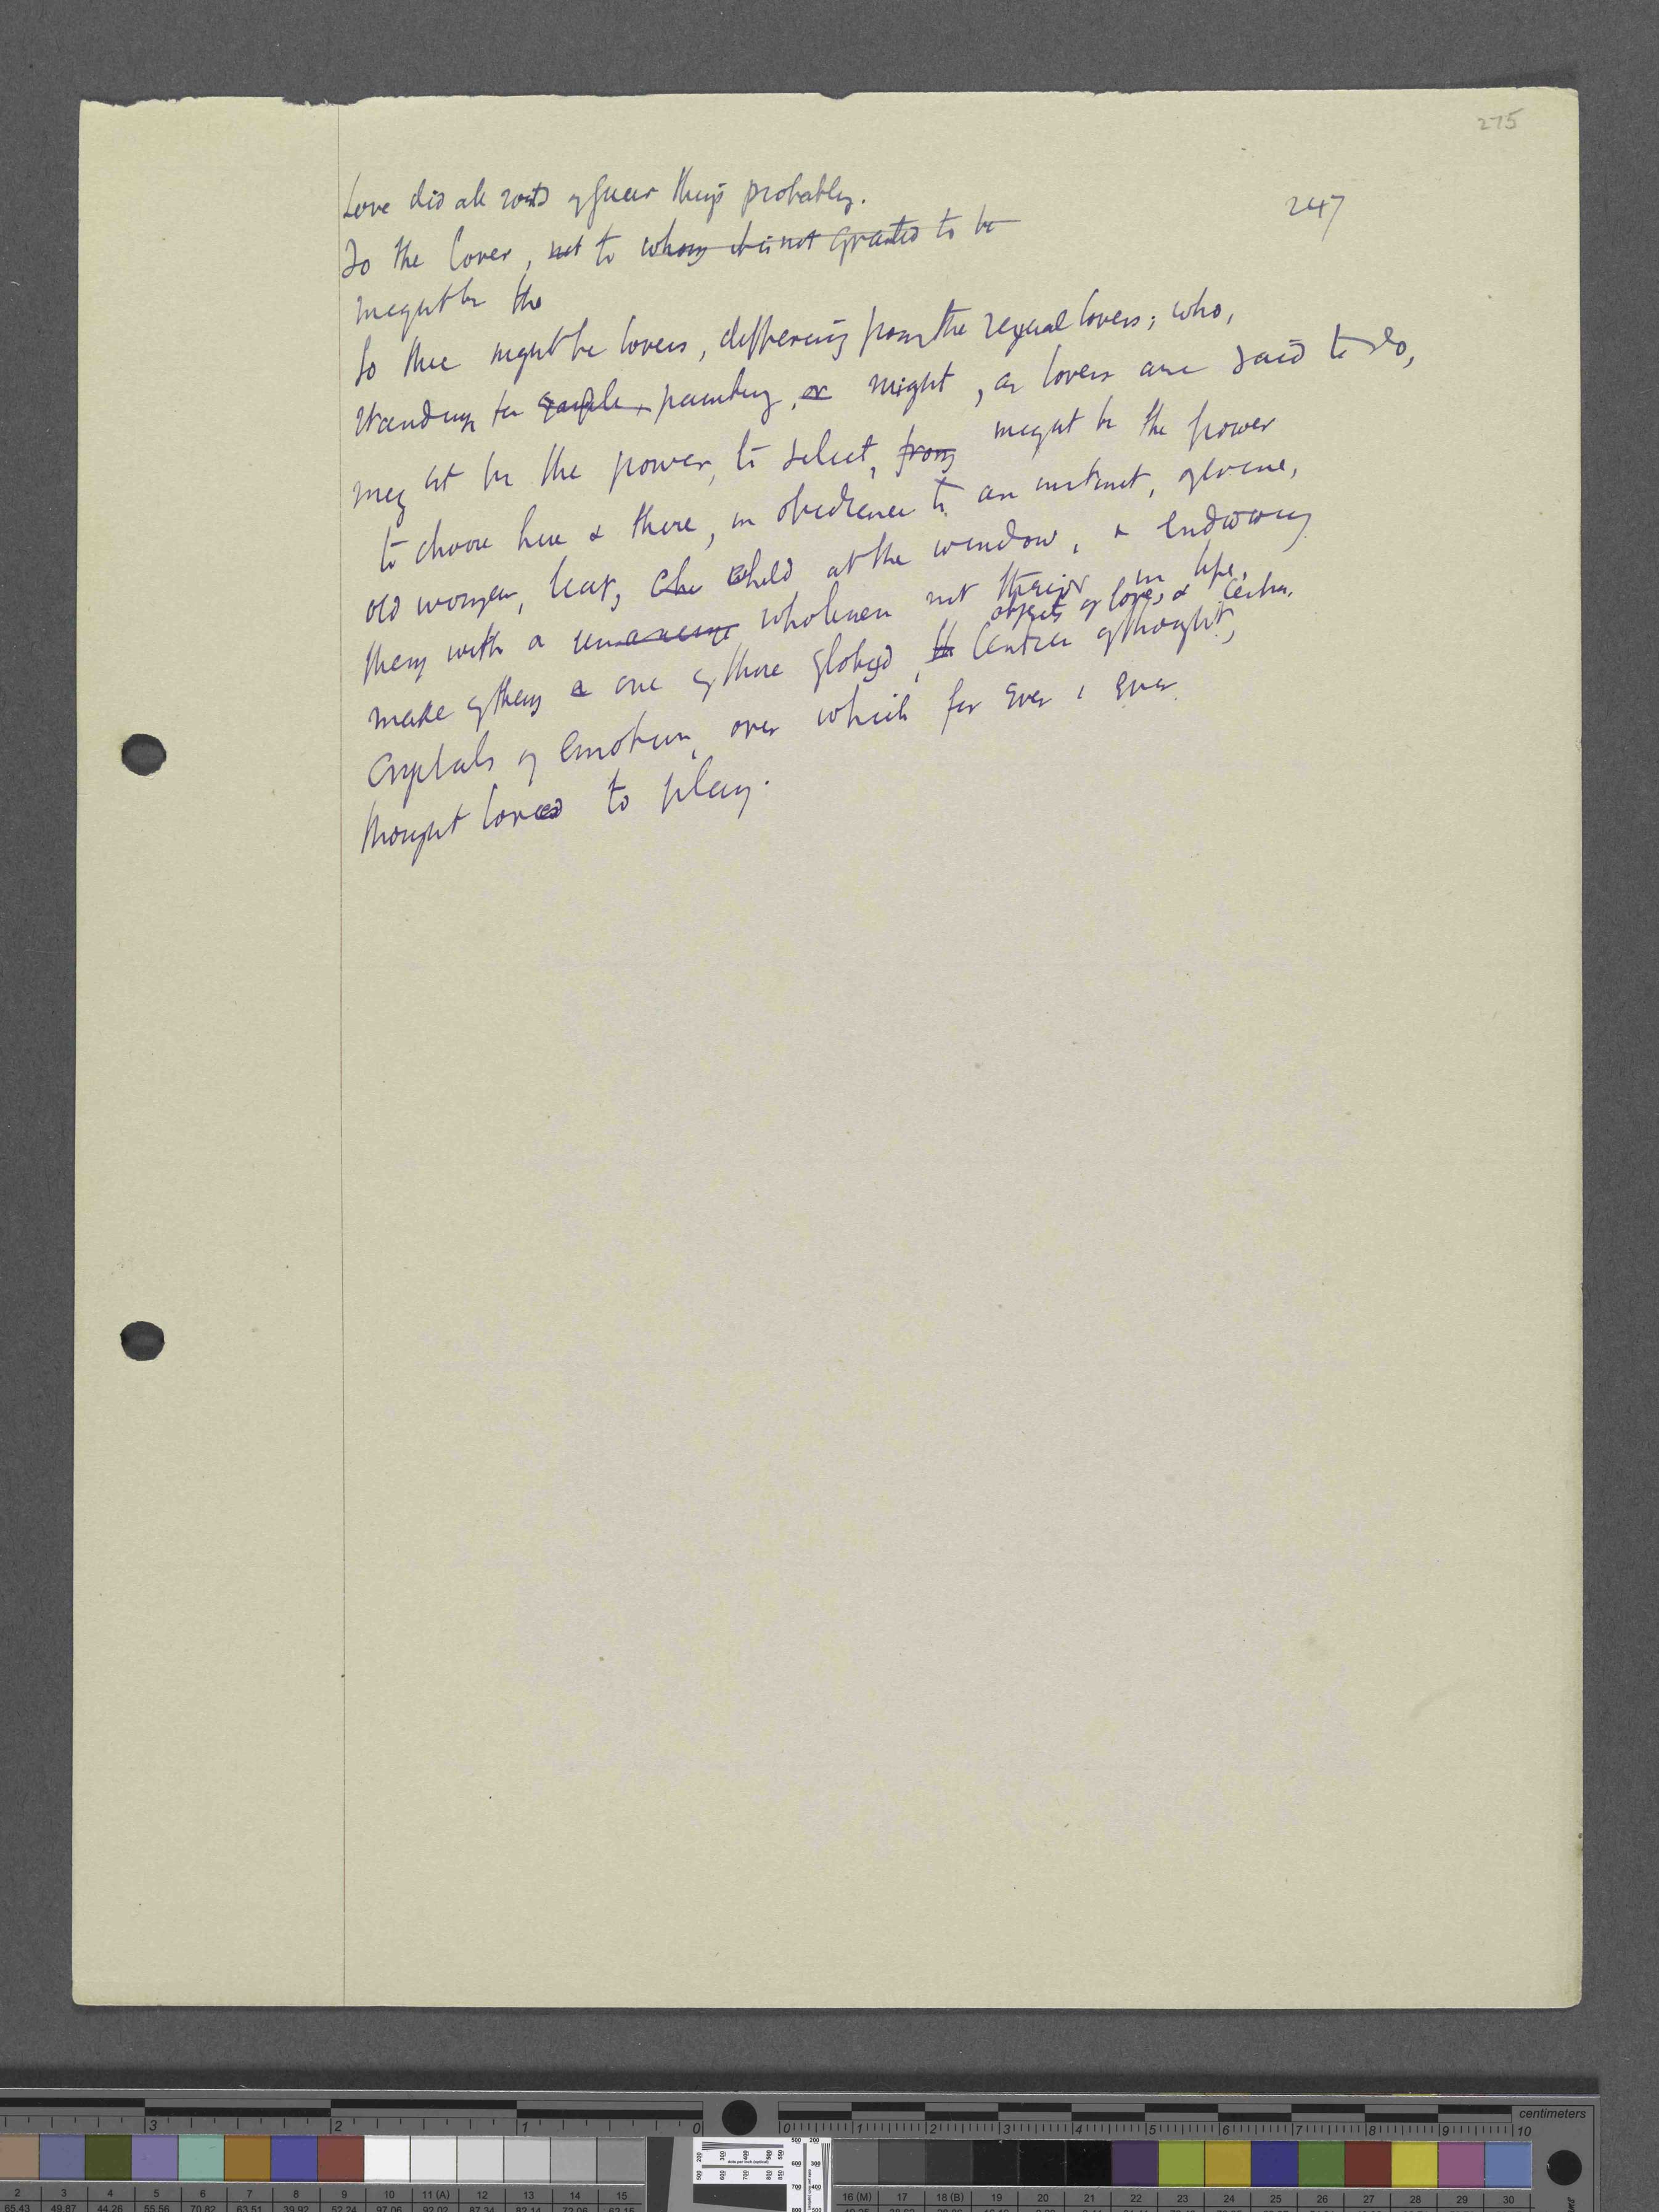 275
247
Love did all sorts of queer things probably.
So the lover, not to whom it is not granted to be
might be the
So there might be lovers, differing from the sexual lovers; who,
standing painting, or might, as lovers are said to do,
might be the power, to select, from might be the power
to choose here & there, in obedience to an instinct, of scene,
old woman, leaf, che child at the window, & endowing
them with a wholeness not theirs in life,
objects of love, & centres
make of them a one of those globed, th centres of thought,
crystals of emotion, over which for ever & ever
thought loved to play.
centimeters
3 2 1 0 0 1 2 3 4 5 6 7 8 9 10
2 3 4 5 6 7 8 9 10 11 (A) 12 13 14 15 16 (M) 17 18 (B) 19 20 21 22 23 24 25 26 27 28 29 30